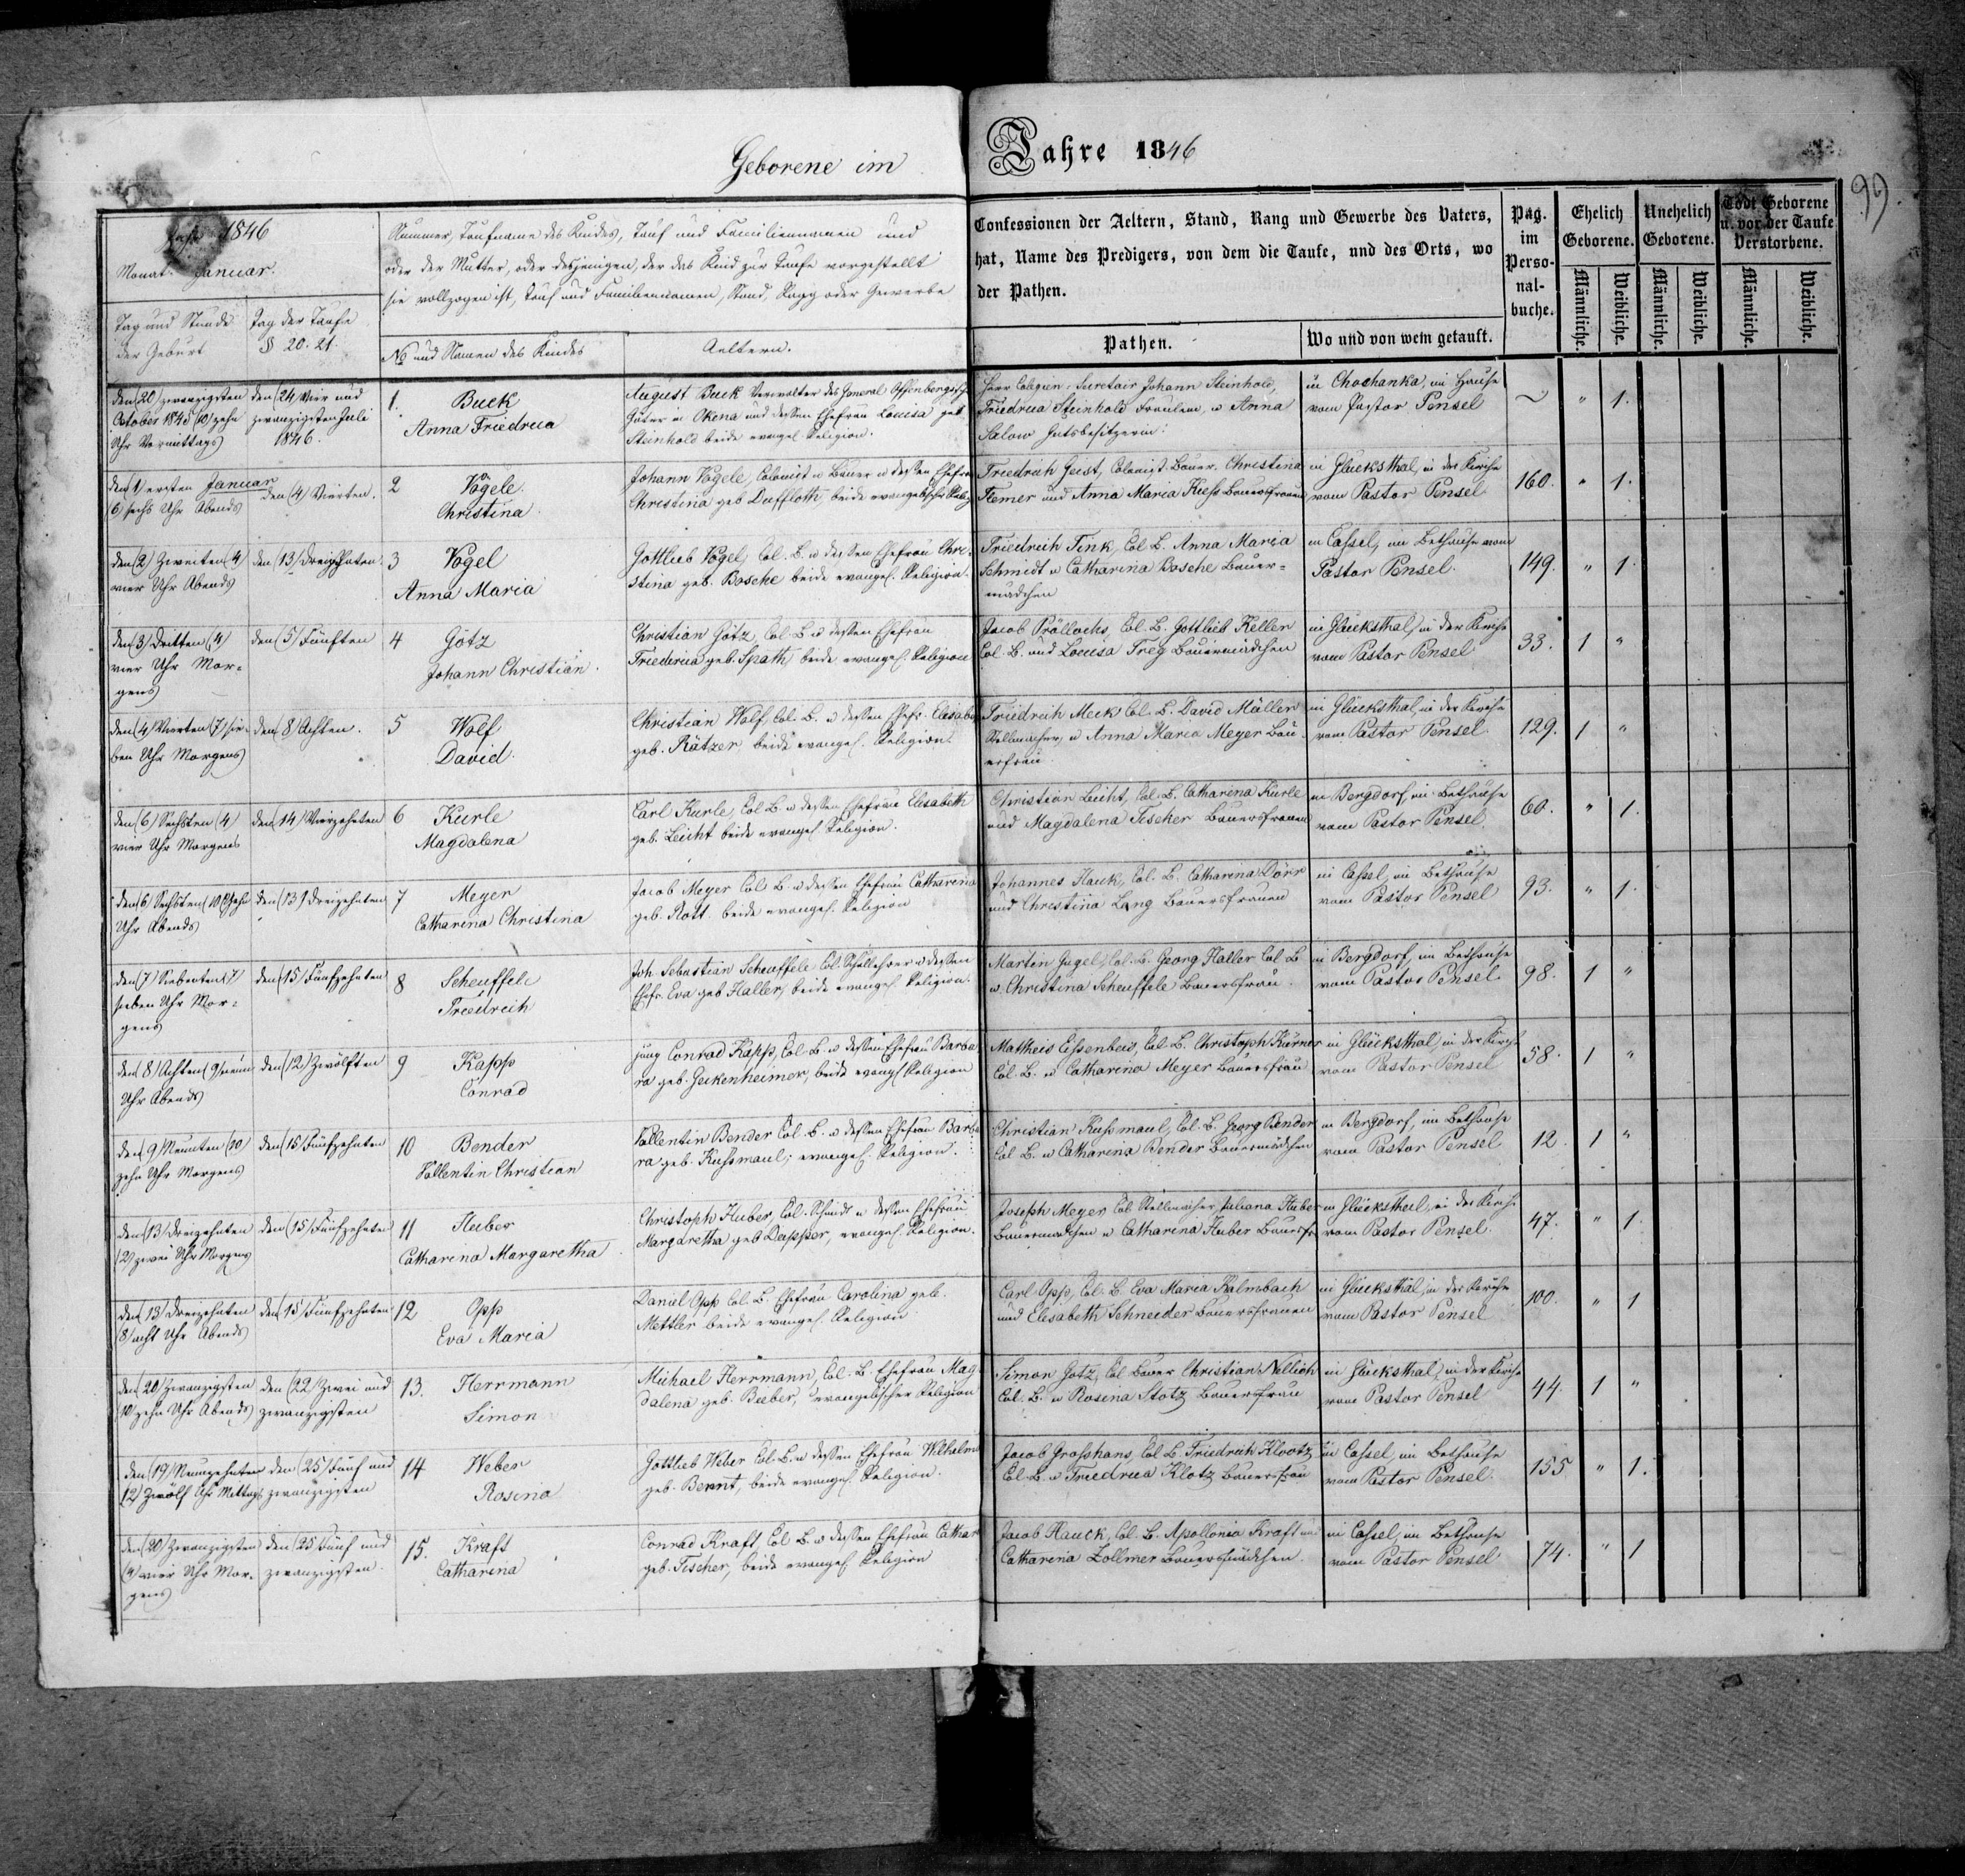 Geborene im Jahre 1846
99
Jahr 1846
Monat. Januar.
Tag und Stunde der Geburt
Tag der Taufe § 20. 21.
Nummer, Taufname des Kindes, Tauf und Familiennamen und
oder der Mutter, oder desjenigen, der das Kind zur Taufe vorgestellt
sie vollzogen ist, Tauf und Familiennamen, Stand, Rang oder Gewerbe
No und Namen des Kindes
Aeltern.
Confessionen der Aeltern, Stand, Rang und Gewerbe des Vaters,
hat, Name des Predigers, von dem die Taufe, und des Orts, wo
der Pathen.
Pathen.
Wo und von wem getauft.
Pag. im Perso- nal- buche.
Ehelich Geborene.
Unehelich Geborene.
Todt Geborene u. vor der Taufe Verstorbene.
Männliche. Weibliche. Männliche. Weibliche. Männliche. Weibliche.
den (20) zwanzigsten October 1845 (10) zehn Uhr Vormittags
den (24) Vier und zwanzigsten Juli 1846.
1. Buck
Anna Friedrica
August Buck Verwalter des General
Güter in Okena und dessen Ehefrau Louisa geb
Steinhold beide evangel. Religion.
Herr Colegien-Secretair Johann Steinhold,
Friedrica Steinhold Fräulein, u Anna
Salow Gutsbesitzerin.
in Chochanka, im Hause
vom Pastor Pensel
~ " 1.
den (1) ersten Januar
(6) sechs Uhr Abends
den (4) Vierten.
2 Vögele.
Christina.
Johann Vögele, Colonist u Bauer u dessen Ehefrau
Christina geb Duffloth, beide evangelischer Relig
Friedrich Geist, Colonist. Bauer. Christina
Femer und Anna Maria Kiess Bauersfrauen
in Glücksthal, in der Kirche
vom Pastor Pensel
160. " 1.
den (2) Zweiten (4)
vier Uhr Abends
den (13) Dreizehnten.
3 Vogel
Anna Maria
Gottlieb Vogel, Col. B. u dessen Ehefrau Chri-
stina geb. Bosche beide evangel. Religion.
Friedrich Fink, Col B. Anna Maria
Schmidt u Catharina Bosche Bauer-
mädchen
in Cassel, im Bethause vom
Pastor Pensel.
149. " 1.
den (3) Dritten (4)
vier Uhr Mor-
gens
den (5) Fünften
4 Götz
Johann Christian.
Christian Götz, Col. B. u dessen Ehefrau
Friederica geb. Späth, beide evangel. Religion
Jacob Pröllochs, Col. B. Gottlieb Keller
Col. B. und Louisa Frey Bauermädchen
in Glücksthal, in der Kirche
vom Pastor Pensel
33. 1 "
den (4) Vierten (7) sie-
ben Uhr Morgens
den (8) Achten.
5 Wolf
David.
Christian Wolf, Col. B. u dessen Ehefr. Elisabe
geb. Rätzer beide evangel. Religion.
Friedrich Meck Col. B. David Müller
Stellmacher, u Anna Maria Meyer Bau-
erfrau
in Glücksthal, in der Kirche
vom Pastor Pensel
129. 1 "
den (6) Sechsten (4)
vier Uhr Morgens
den (14) Vierzehnten
6 Kurle
Magdalena
Carl Kurle, Col. B. u dessen Ehefrau Elisabeth
geb. Leicht beide evangel. Religion.
Christian Leicht, Col. B. Catharina Kurle
und Magdalena Fischer Bauersfrauen
in Bergdorf, im Bethause
vom Pastor Pensel.
60. " 1.
den (6) Sechsten (10) Zehn
Uhr Abends
den (13) Dreizehnten
7 Meyer
Catharina Christina
Jacob Meyer Col. B. u dessen Ehefrau Catharina
geb. Rott. beide evangel. Religion
Johannes Hauk, Col. B. Catharina Dörr
und Christina Lang Bauersfrauen
in Cassel, im Bethause
vom Pastor Pensel
93. " 1.
den (7) Siebenten (7)
sieben Uhr Mor-
gens
den (15) Fünfzehnten
8 Scheuffele
Friedrich
Joh. Sebastian Scheuffele Col. Schullehrer u dessen
Ehefr. Eva geb Haller, beide evangel. Religion.
Martin Gugel, Col. B. Georg Haller Col B
u. Christina Scheuffele Bauersfrau.
in Bergdorf, im Bethause
vom Pastor Pensel
98. 1 "
den (8) Achten (9) neun
Uhr Abends
den (12) Zwölften
9 Kapp
Conrad
jung Conrad Kapp, Col. B. u dessen Ehefrau Barba
ra geb. Geckenheimer, beide evangl Religion
Mattheis Eissenbeis, Col. B. Christoph Kürner
Col. B. u Catharina Meyer Bauersfrau
in Glücksthal, in der Kirche
vom Pastor Pensel
58. 1 "
den (9) Neunten (10)
zehn Uhr Morgens
den (15) Fünfzehnten
10 Bender
Vallentin Christian
Vallentin Bender Col. B. u dessen Ehefrau Barba
ra geb. Kussmaul; evangel. Religion.
Christian Kussmaul, Col. B. Georg Bender
Col. B. u Catharina Bender Bauermädchen
in Bergdorf, im Bethause
vom Pastor Pensel
12. 1 "
den (13) Dreizehnten
(2) zwei Uhr Morgens
den (15) Fünfzehnten
11 Huber
Catharina Margaretha
Christoph Huber, Col. Schmidt u dessen Ehefrau
Margaretha geb Dapper, evangel. Religion.
Joseph Meyer Col. Stellmacher, Juliana Huber
Bauermädchen u Catharina Huber Bauersfr
in Glücksthal, in der Kirche
vom Pastor Pensel.
47. " 1.
den (13) Dreizehnten
(8) acht Uhr Abends
den (15) Fünfzehnten
12 Opp
Eva Maria
Daniel Opp Col. B. Ehefrau Carolina geb.
Mettler beide evangel. Religion
Carl Opp, Col. B. Eva Maria Kalmbach
und Elisabeth Schneider Bauersfrauen
in Glücksthal, in der Kirche
vom Pastor Pensel
100. " 1
den (20) Zwanzigsten
(10) zehn Uhr Abends
den (22) Zwei und
zwanzigsten
13. Herrmann
Simon
Michael Herrmann, Col. B. Ehefrau Mag
dalena geb. Bieber, evangelischer Religion
Simon Götz, Col Bauer Christian Nellich
Col. B. u Rosina Stotz Bauersfrau
in Glücksthal, in der Kirche
vom Pastor Pensel
44. 1 "
den (19) Neunzehnten
(12) Zwölf Uhr Mittags
den (25) Fünf und
zwanzigsten
14 Weber
Rosina
Gottlieb Weber Col. B. u dessen Ehefrau Wilhelmi
geb. Bernt, beide evangel. Religion.
Jacob Grosshans, Col B. Friedrich Klootz
Col. B. u Friedrica Klotz Bauersfrau
in Cassel, im Bethause
vom Pastor Pensel.
155 " 1.
den (20) Zwanzigsten
(4) vier Uhr Mor-
gens
den 25 Fünf und
zwanzigsten.
15. Kraft
Catharina
Conrad Kraft, Col B. u dessen Ehefrau Cathar
geb. Fischer, beide evangel. Religion
Jacob Hauck, Col. B. Apollonia Kraft und
Catharina Zollmer Bauersmädchen.
in Cassel, im Bethause
vom Pastor Pensel
74. " 1